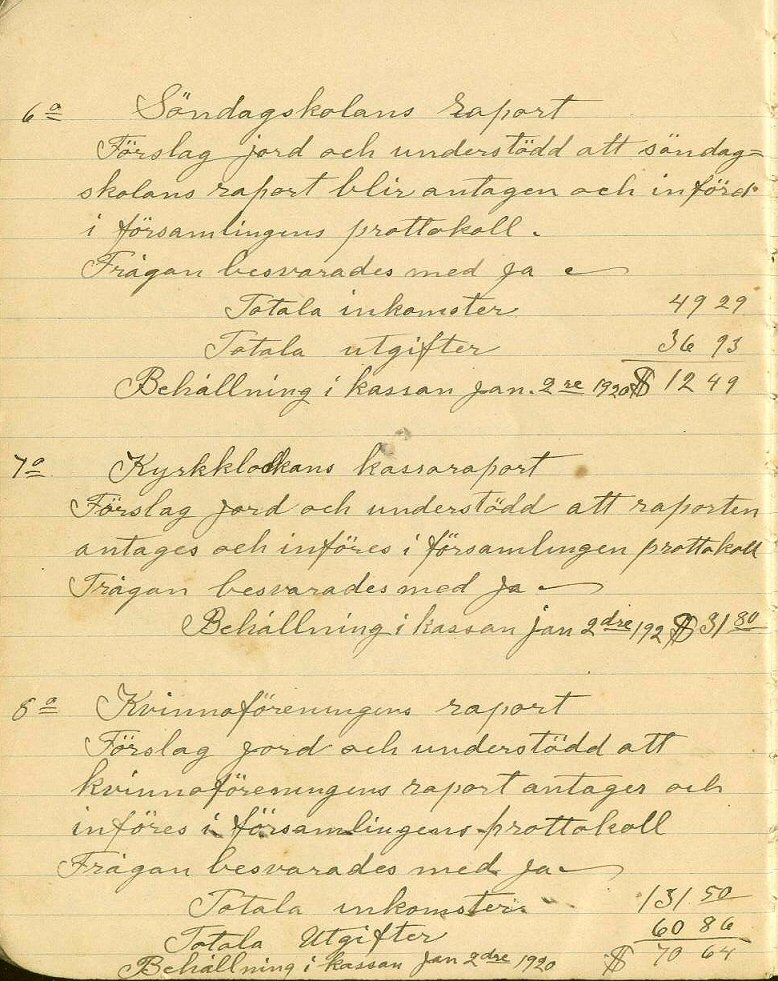 6º Söndagskolans raport
Förslag jord och understödd att söndag=
skolans raport blir antagen och införd
i församlingens prottokoll.
Frågan besvarades med Ja
Totala inkomster 49 29
Totala utgifter 36 93
Behållning i kassan Jan. 2re 1920 $ 12 49
7º Kyrkklockans kassaraport
Förslag jord och understödd att raporten
antages och införes i församlingen prottokoll
Frågan besvarades med Ja
Behållning i kassan jan 2dre 192 $ 31 80
8º Kvinnoföreningens raport
Förslag jord och understödd att
kvinnoföreningens raport antages och
införes i församlingens prottokoll
Frågan besvarades med Ja
Totala inkomster 131 50
Totala Utgifter 60 86
Behållning i kassan Jan 2dre 1920 $ 70 64